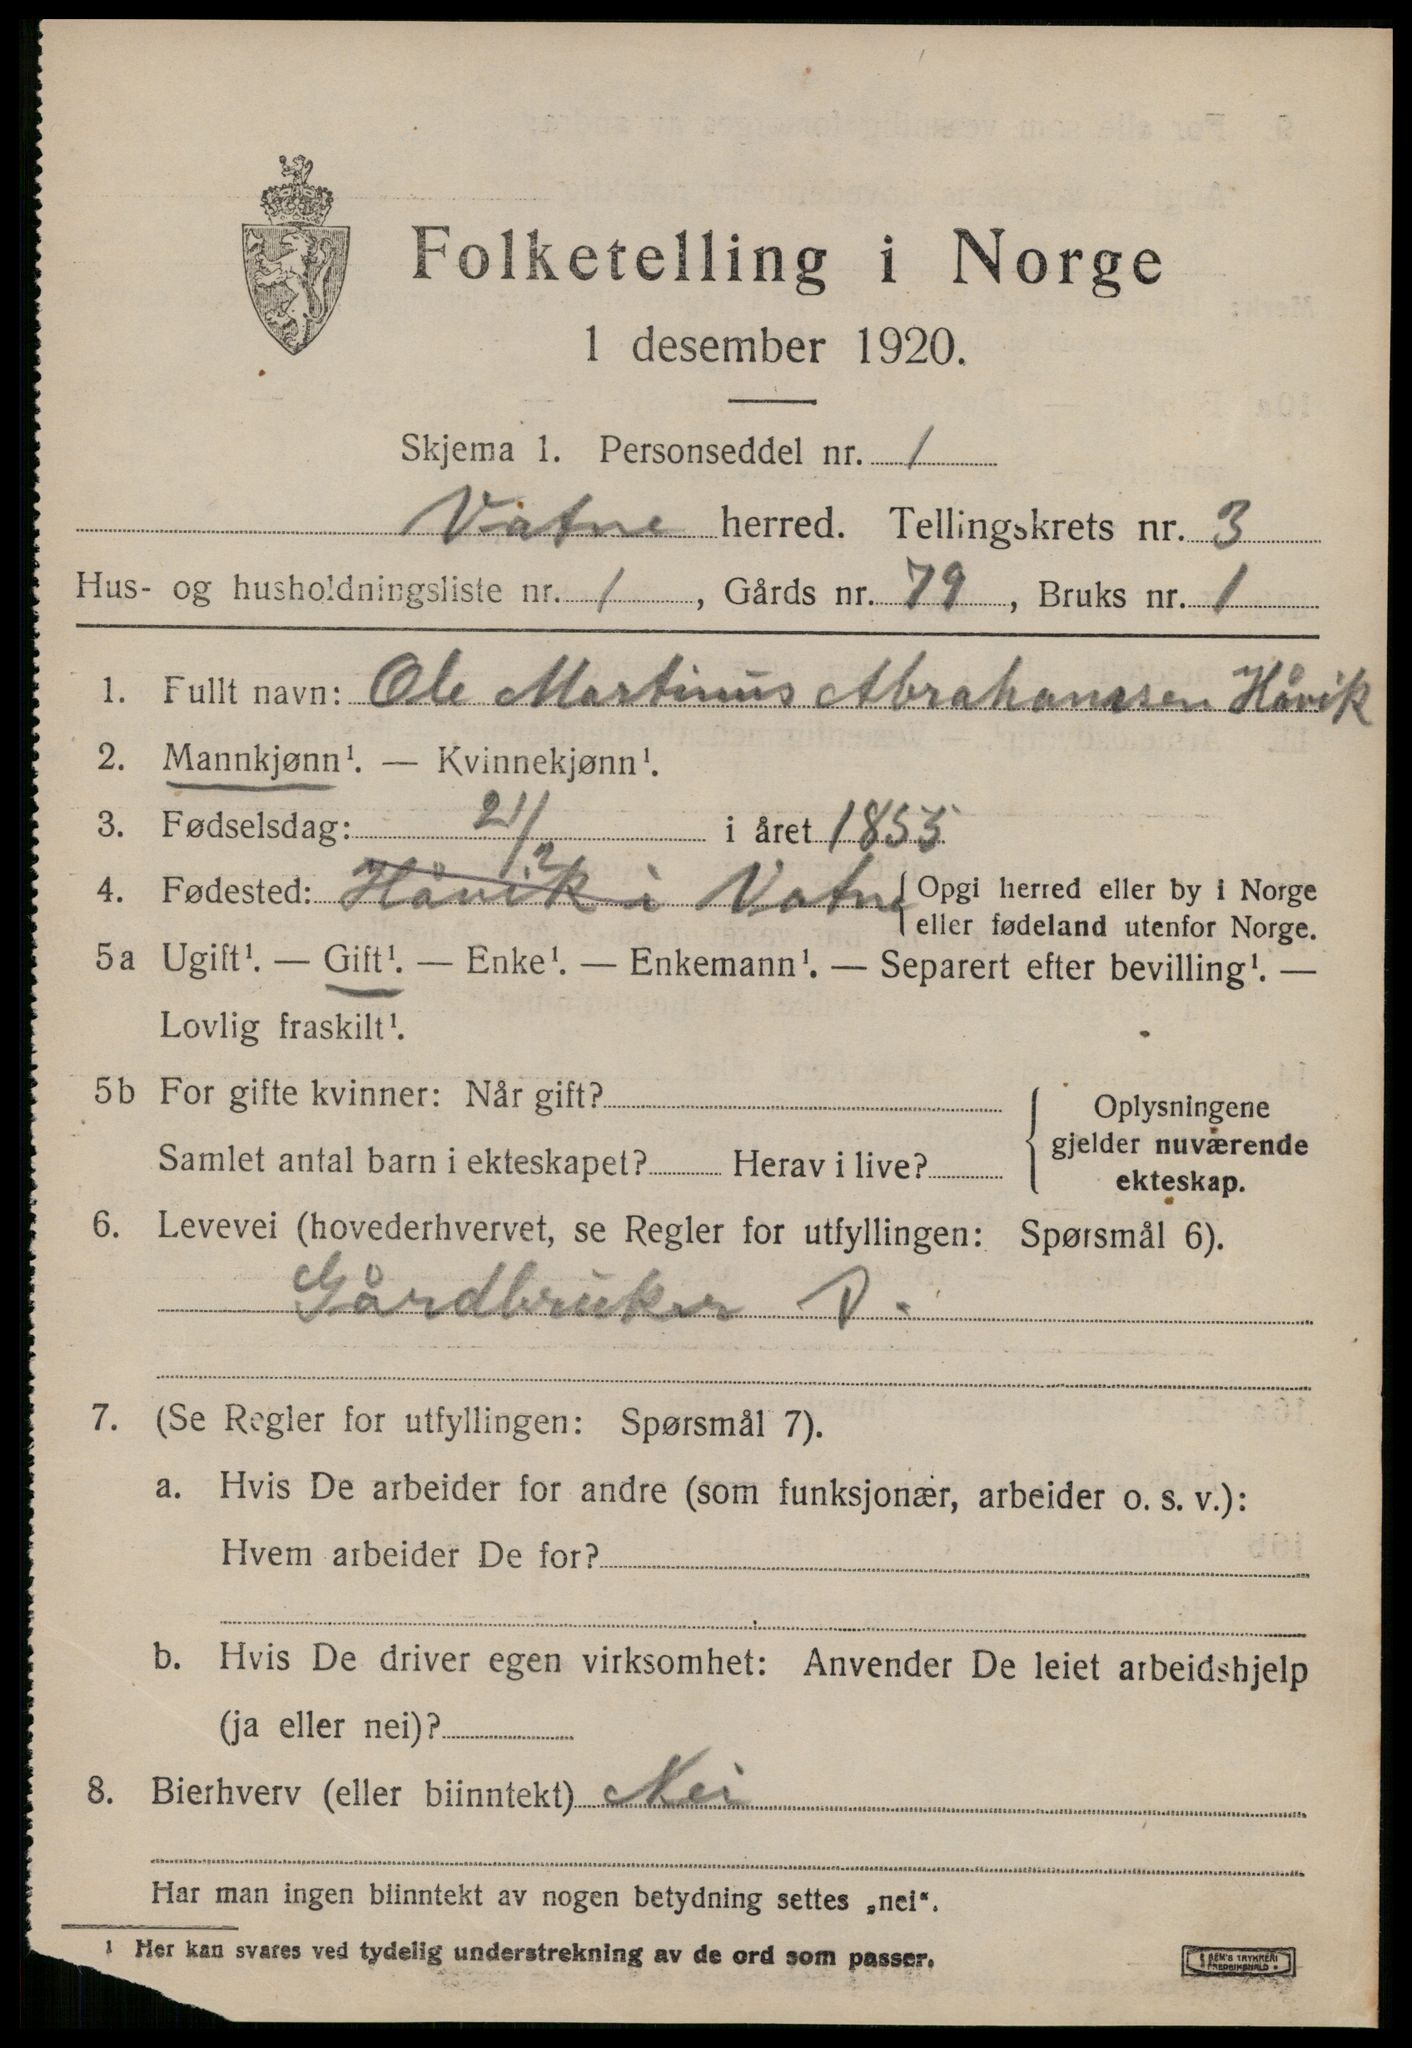 Folketelling i Norge
1 desember 1920.
Skjema 1. Personseddel nr. 1
Vatne herred. Tellingskrets nr. 3
Hus- og husholdningsliste nr. 1, Gårds nr. 79, Bruks nr. 1
1. Fullt navn: Ole Martinus Abrahamsen Håvik
2. Mannkjønn¹. — Kvinnekjønn¹.
3. Fødselsdag: 21/2 i året 1855
4. Fødested: Håvik i Vatne { Opgi herred eller by i Norge
eller fødeland utenfor Norge.
5a Ugift¹. — Gift¹. — Enke¹. — Enkemann¹. — Separert efter bevilling¹. —
Lovlig fraskilt¹.
5b For gifte kvinner: Når gift?
Samlet antal barn i ekteskapet? Herav i live?
{ Oplysningene
gjelder nuværende
ekteskap.
6. Levevei (hovederhvervet, se Regler for utfyllingen: Spørsmål 6).
Gårdbruker D.
7. (Se Regler for utfyllingen: Spørsmål 7).
a. Hvis De arbeider for andre (som funksjonær, arbeider o. s. v.):
Hvem arbeider De for?
b. Hvis De driver egen virksomhet: Anvender De leiet arbeidshjelp
(ja eller nei)?
8. Bierhverv (eller biinntekt) Nei
Har man ingen biinntekt av nogen betydning settes „nei“.
¹ Her kan svares ved tydelig understrekning av de ord som passer.
TRYKKERI
FREDRIKSHALD